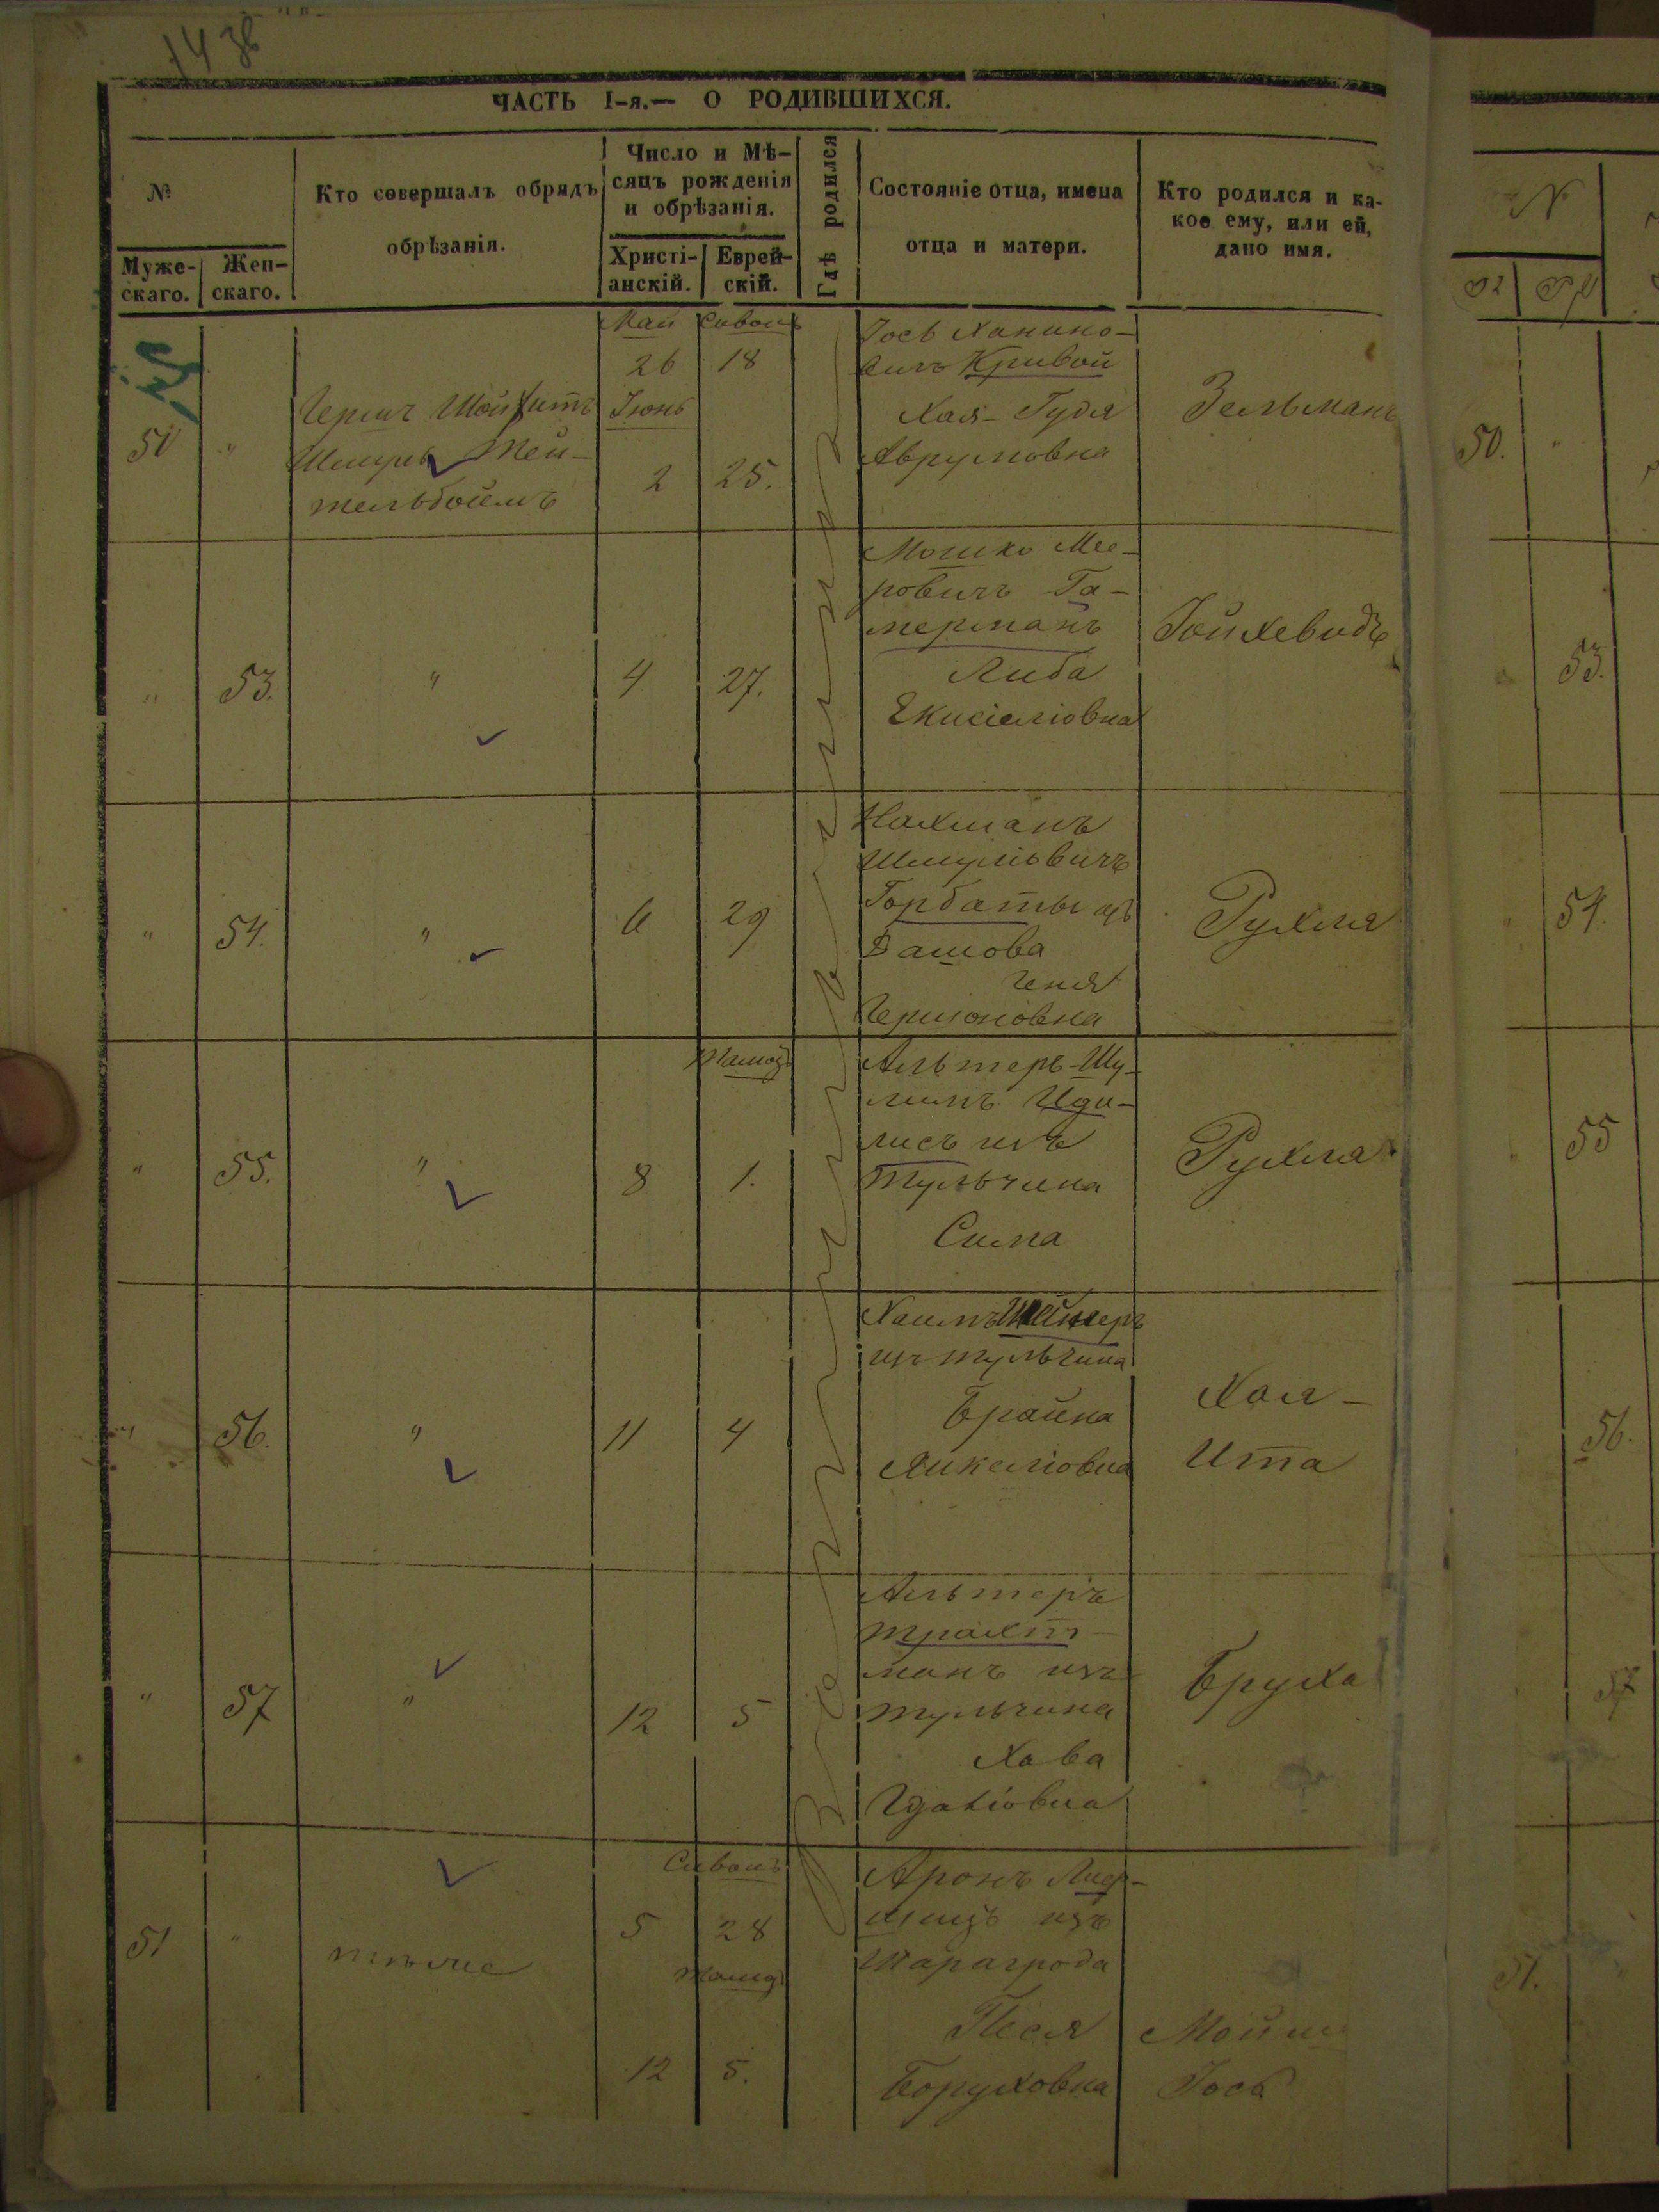 143б
ЧАСТЬ I-я.— О РОДИВШИХСЯ.
№
Муже-
скаго.
Жен-
скаго.
Кто совершалъ обрядъ
обрѣзанія.
Число и Мѣ-
сяцъ рожденія
и обрѣзанія.
Христі-
анскій.
Еврей-
скій.
Гдѣ родился
Состояніе отца, имена
отца и матери.
Кто родился и ка-
кое ему, или ей,
дано имя.
50 "
Гершъ Шойхитъ
Шмуль Тей-
тельбоймъ
Май Сивонъ
26 18
Іюнь
2 25.
Іось Ханано-
вичъ Кривой
Хая-Гудя
Аврумовна
Зельманъ
" 53. "
4 27.
Мошко Мее-
ровичъ Га-
мерманъ
Либа
Екисіелiовна
Іойхеведъ
" 54. "
6 29
Нахманъ
Шмулiовичъ
Горбаты изъ
Дашова
Геня
Гершоновна
Рухля
" 55. "
Тамозъ
8 1.
Альтеръ-Шу-
лимъ
лисъ изъ
Тульчина
Сима
Рухля
" 56. "
11 4
Хаимъ
изъ Тульчина
Брайна
Янкелiовна
Хая-
Ита
" 57 "
12 5
Альтеръ
Трахт-
манъ изъ
Тульчина
Хава
Бруха
51 "
тѣже
Сивонъ
5 28
Тамозъ
12 5.
Аронъ
изъ
Шарагрода
Песя
Боруховна
Іось
№
50. "
53.
54.
55
56.
57
51.